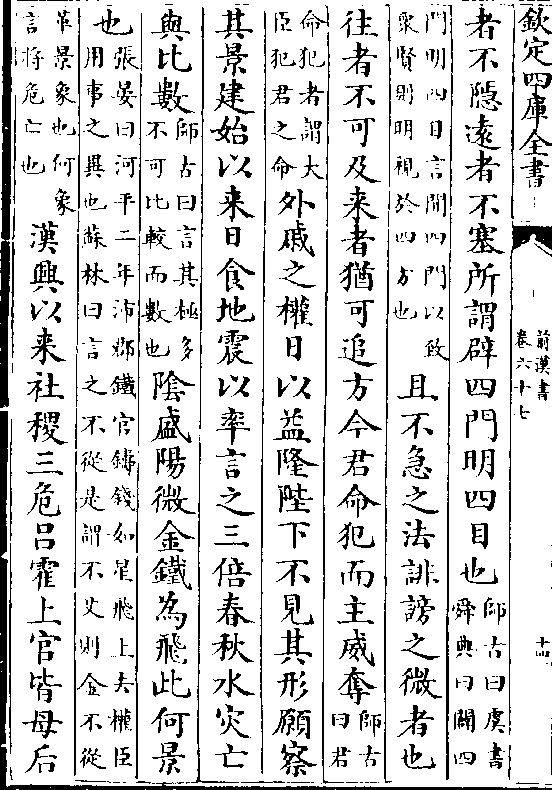 欽定四庫全書
前漢書
卷六十七
十四
者不隱遠者不塞所謂辟四門明四目也師古曰虞書
舜典曰闢四
門明四目言開四門以致
衆賢則明視於四方也
且不急之法誹謗之微者也
往者不可及来者猶可追方今君命犯而主威奪師古
曰君
命犯者謂大
臣犯君之命
外戚之權日以益隆陛下不見其形願察
其景建始以来日食地震以率言之三倍春秋水灾亡
與比數師古曰言其極多
不可比較而數也
陰盛陽微金鐵為飛此何景
也張晏曰河平二年沛郡鐵官鑄錢如星飛上去權臣
用事之異也蘇林曰言之不從是謂不艾則金不從
革景象也何象
言將危亡也
漢興以来社稷三危吕霍上官皆母后